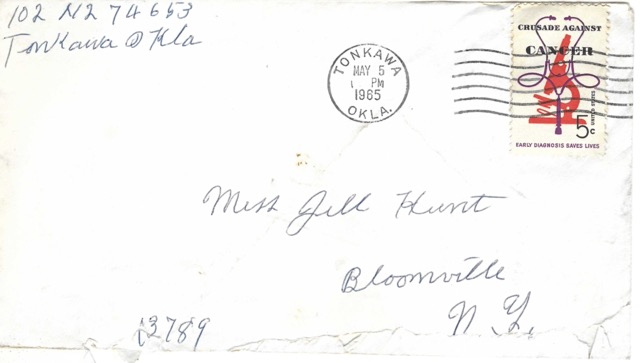 102 N2 74653
Tonkawa Okla
TONKAWA
MAY 5
1 PM
1965
OKLA.
CRUSADE AGAINST
CANCER
5c
UNITED STATES
EARLY DIAGNOSIS SAVES LIVES
Miss Jill Hunt
Bloomville
N.Y.
13789